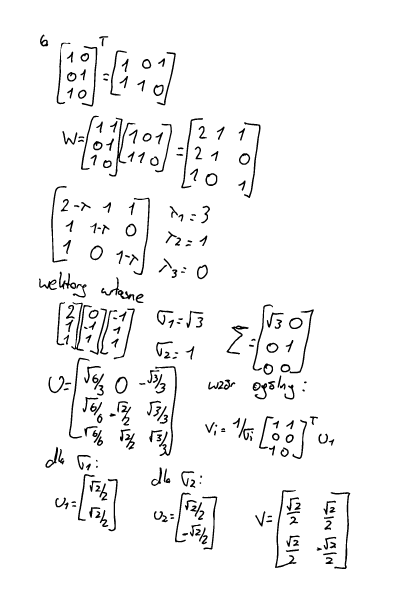 6 [1 0; 0 1; 1 0]^T = [1 0 1; 1 1 0]
W = [1 1; 0 1; 1 0] [1 0 1; 1 1 0] = [2 1 1; 2 1 0; 1 0 1]
[2-λ 1 1; 1 1-λ 0; 1 0 1-λ] λ1 = 3
λ2 = 1
λ3 = 0
wektory własne
[2; 1; 1] [0; -1; 1] [-1; 1; 1] σ1 = √3
σ2 = 1
Σ = [√3 0; 0 1; 0 0]
U = [√6/3 0 -√3/3; √6/6 -√2/2 √3/3; √6/6 √2/2 √3/3]
wzór ogólny:
Vi = 1/σi [1 1; 0 0; 1 0]^T U1
dla σ1: dla σ2:
U1 = [√2/2; √2/2] U2 = [√2/2; -√2/2] V = [√2/2 √2/2; √2/2 -√2/2]